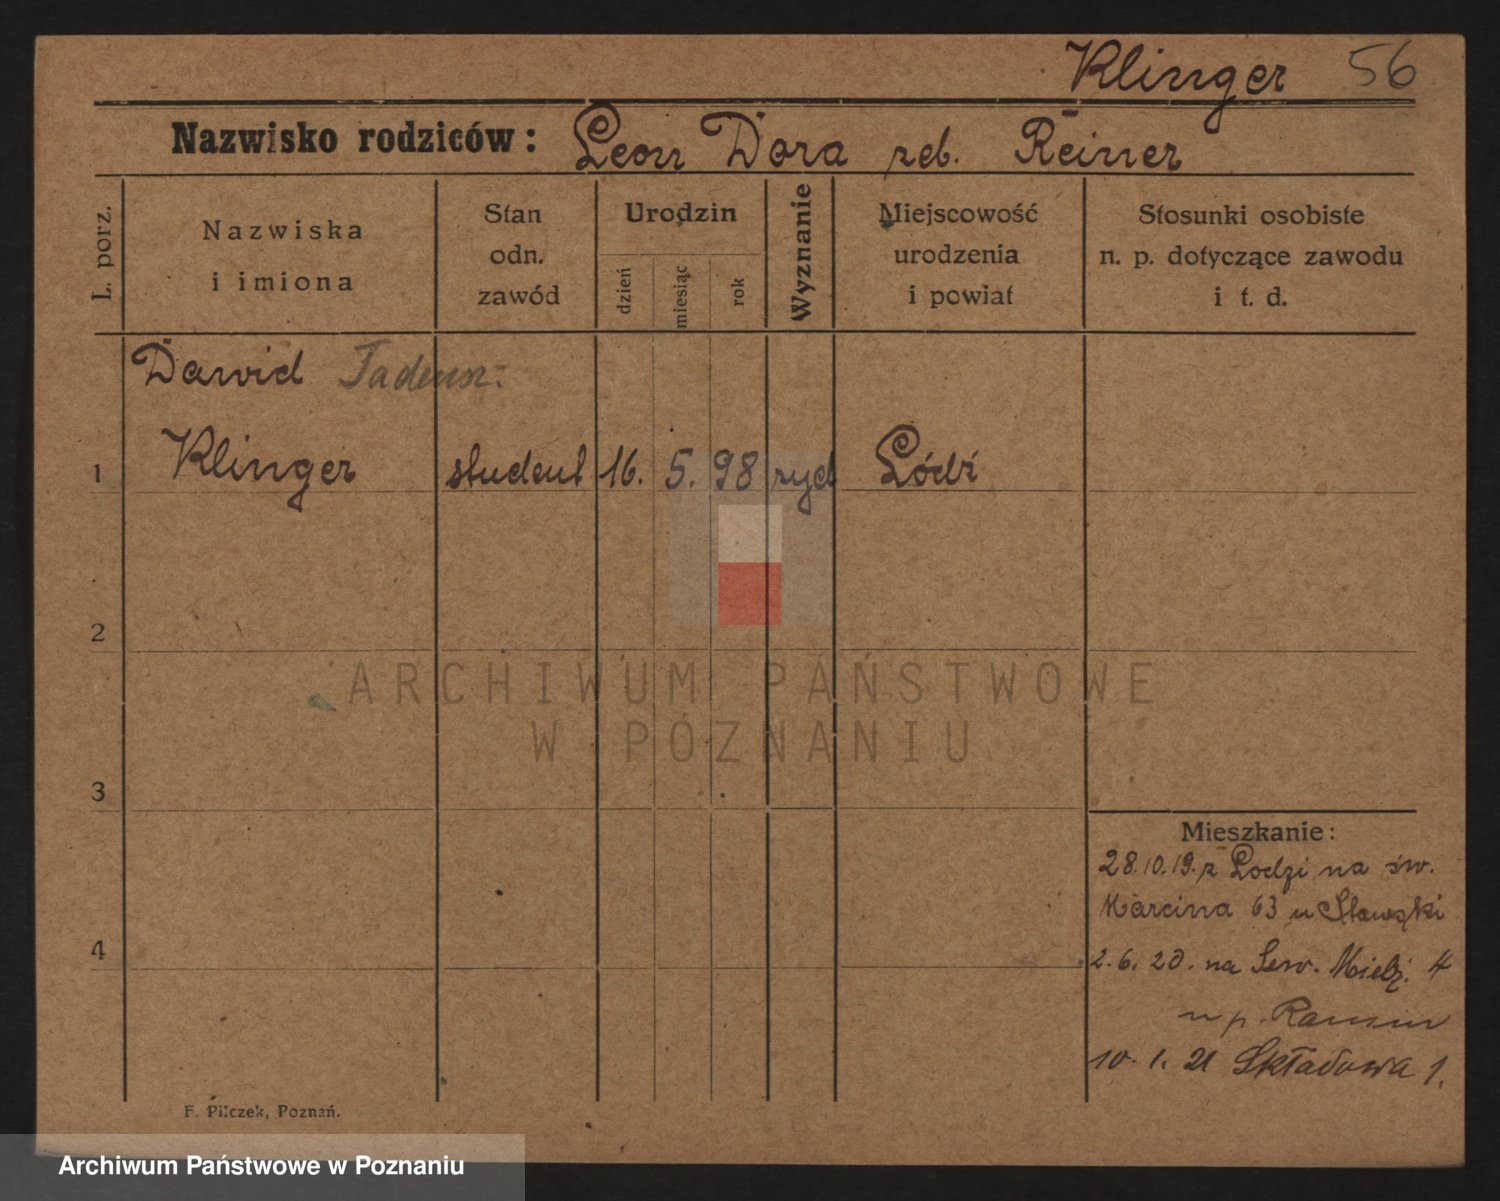 Klinger 56
Nazwisko rodziców: Leon Dora reb. Reiner
L. porz.
Nazwiska
i imiona
Stan
odn.
zawód
Urodzin
dzień
miesiąc
rok
Wyznanie
Miejscowość
urodzenia
i powiat
Stosunki osobiste
n. p. dotyczące zawodu
i t. d.
Dawid Tadeusz
1 Klinger student 16. 5. 98 żyd Łódź
2
ARCHIWUM PAŃSTWOWE
W POZNANIU
3
Mieszkanie:
28.10.19. z Łodzi na św.
Marcina 63 u
4
2.6.20. na Sew. Mielż. 4
u p.
10. 1. 21 Składowa 1.
F. Pilczek, Poznań.
Archiwum Państwowe w Poznaniu